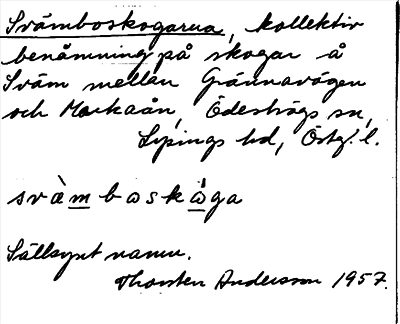 Svämboskogarna, kollektiv
benämning på skogar å
Sväm mellan Grännavägen
och Morkaån, Ödeshögs sn,
Lysings hd, Östg. l.
svàmboskɷ́ga
Sällsynt namn.
Thorsten Andersson 1957.